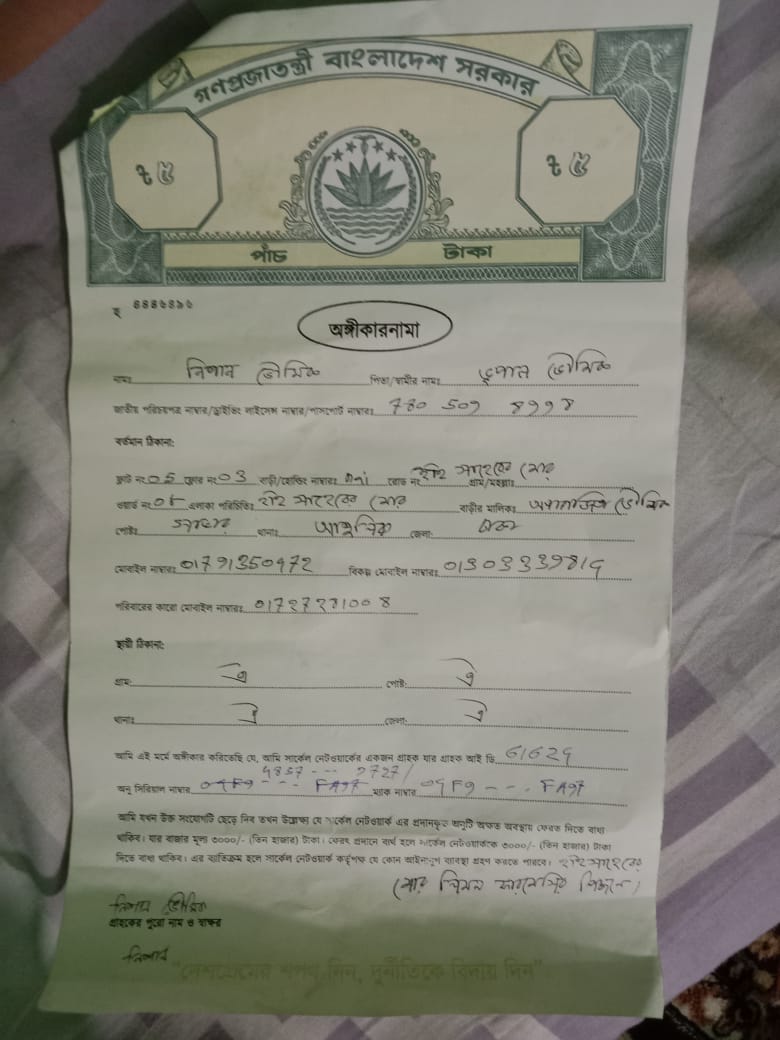 গণপ্রজাতন্ত্রী বাংলাদেশ সরকার
৳ ৫ ৳ ৫
পাঁচ টাকা
অঙ্গীকারনামা
নামঃ ভৌমিক পিতা/স্বামীর নামঃ ভূপাল ভৌমিক
জাতীয় পরিচয়পত্র নাম্বার/ড্রাইভিং লাইসেন্স নাম্বার/পাসপোর্ট নাম্বারঃ 780 509 8998
বর্তমান ঠিকানা:
ফ্লাট নং 05 ফ্লোর নং 03 বাড়ী/হোল্ডিং নাম্বারঃ রোড নং সাহেবের মোড় গ্রাম/মহল্লাঃ
ওয়ার্ড নং এলাকা পরিচিতিঃ সাহেবের মোড় বাড়ীর মালিকঃ ভৌমিক
পোষ্টঃ থানাঃ জেলাঃ
মোবাইল নাম্বারঃ 01791350972 বিকল্প মোবাইল নাম্বারঃ
পরিবারের কারো মোবাইল নাম্বারঃ
স্থায়ী ঠিকানা:
গ্রামঃ ঐ পোষ্টঃ ঐ
থানাঃ ঐ জেলাঃ ঐ
আমি এই মর্মে অঙ্গীকার করিতেছি যে, আমি সার্কেল নেটওয়ার্কের একজন গ্রাহক যার গ্রাহক আই ডি 61629
4857 --- 2727/
অনু সিরিয়াল নাম্বার 09F9 --- FA97 ম্যাক নাম্বার 09F9 --- FA97
আমি যখন উক্ত সংযোগটি ছেড়ে দিব তখন উল্লেখ্য যে সার্কেল নেটওয়ার্ক এর প্রদানকৃত অনুটি অক্ষত অবস্থায় ফেরত দিতে বাধ্য
থাকিব। যার বাজার মূল্য ৩০০০/- (তিন হাজার) টাকা। ফেরৎ প্রদানে ব্যর্থ হলে সার্কেল নেটওয়ার্ককে ৩০০০/- (তিন হাজার) টাকা
দিতে বাধ্য থাকিব। এর ব্যতিক্রম হলে সার্কেল নেটওয়ার্ক কর্তৃপক্ষ যে কোন আইনানুগ ব্যবস্থা গ্রহণ করতে পারবে। সাহেবের
(মোড়
ভৌমিক
গ্রাহকের পুরো নাম ও স্বাক্ষর
"দেশপ্রেমের শপথ নিন, দুর্নীতিকে বিদায় দিন"